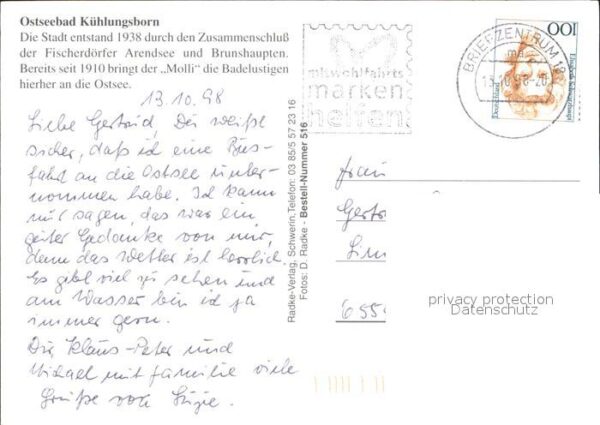 Ostseebad Kühlungsborn
Die Stadt entstand 1938 durch den Zusammenschluß
der Fischerdörfer Arendsee und Brunshaupten.
Bereits seit 1910 bringt der „Molli“ die Badelustigen
hierher an die Ostsee.
13.10.98
Liebe Gertrud, Du weißt
sicher, daß ich eine Bus-
fahrt an die Ostsee unter-
nommen habe. Ich kann
nur sagen, das war ein
guter Gedanke von mir,
denn das Wetter ist herrlich.
Es gibt viel zu sehen und
am Wasser bin ich ja
immer gern.
Dir Klaus-Peter und
Michael mit Familie viele
Grüße von
Radke-Verlag, Schwerin, Telefon: 03 85/5 57 23 16
Fotos: D. Radke - Bestell-Nummer 516
mit wohlfahrts
marken
helfen
BRIEFZENTRUM 18
13.10.98-20
100
Deutschland
Frau
655
privacy protection
Datenschutz